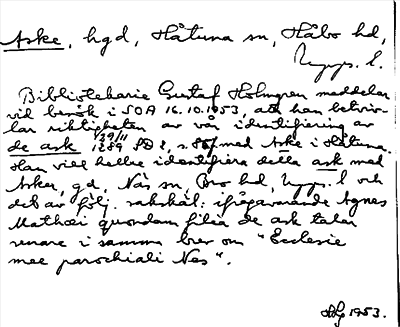 Aske, hgd, Håtuna sn, Håbo hd,
Upps. l.
Bibliotekarie Gustaf Holmgren meddelar
vid besök i SOA 16.10.1953, att han betviv-
lar riktigheten av vår identifiering av
de ask 29/11 1289 SD 2, s. 88 med Aske i Håtuna.
Han vill hellre identifiera detta ask med
Asker, gd, Näs sn, Bro hd, Upps. l och
det av följ. sakskäl: ifrågavarande Agnes
Mathæi quondam filia de ask talar
senare i samma brev om "Ecclesie
mee parochiali Nes".
1953.